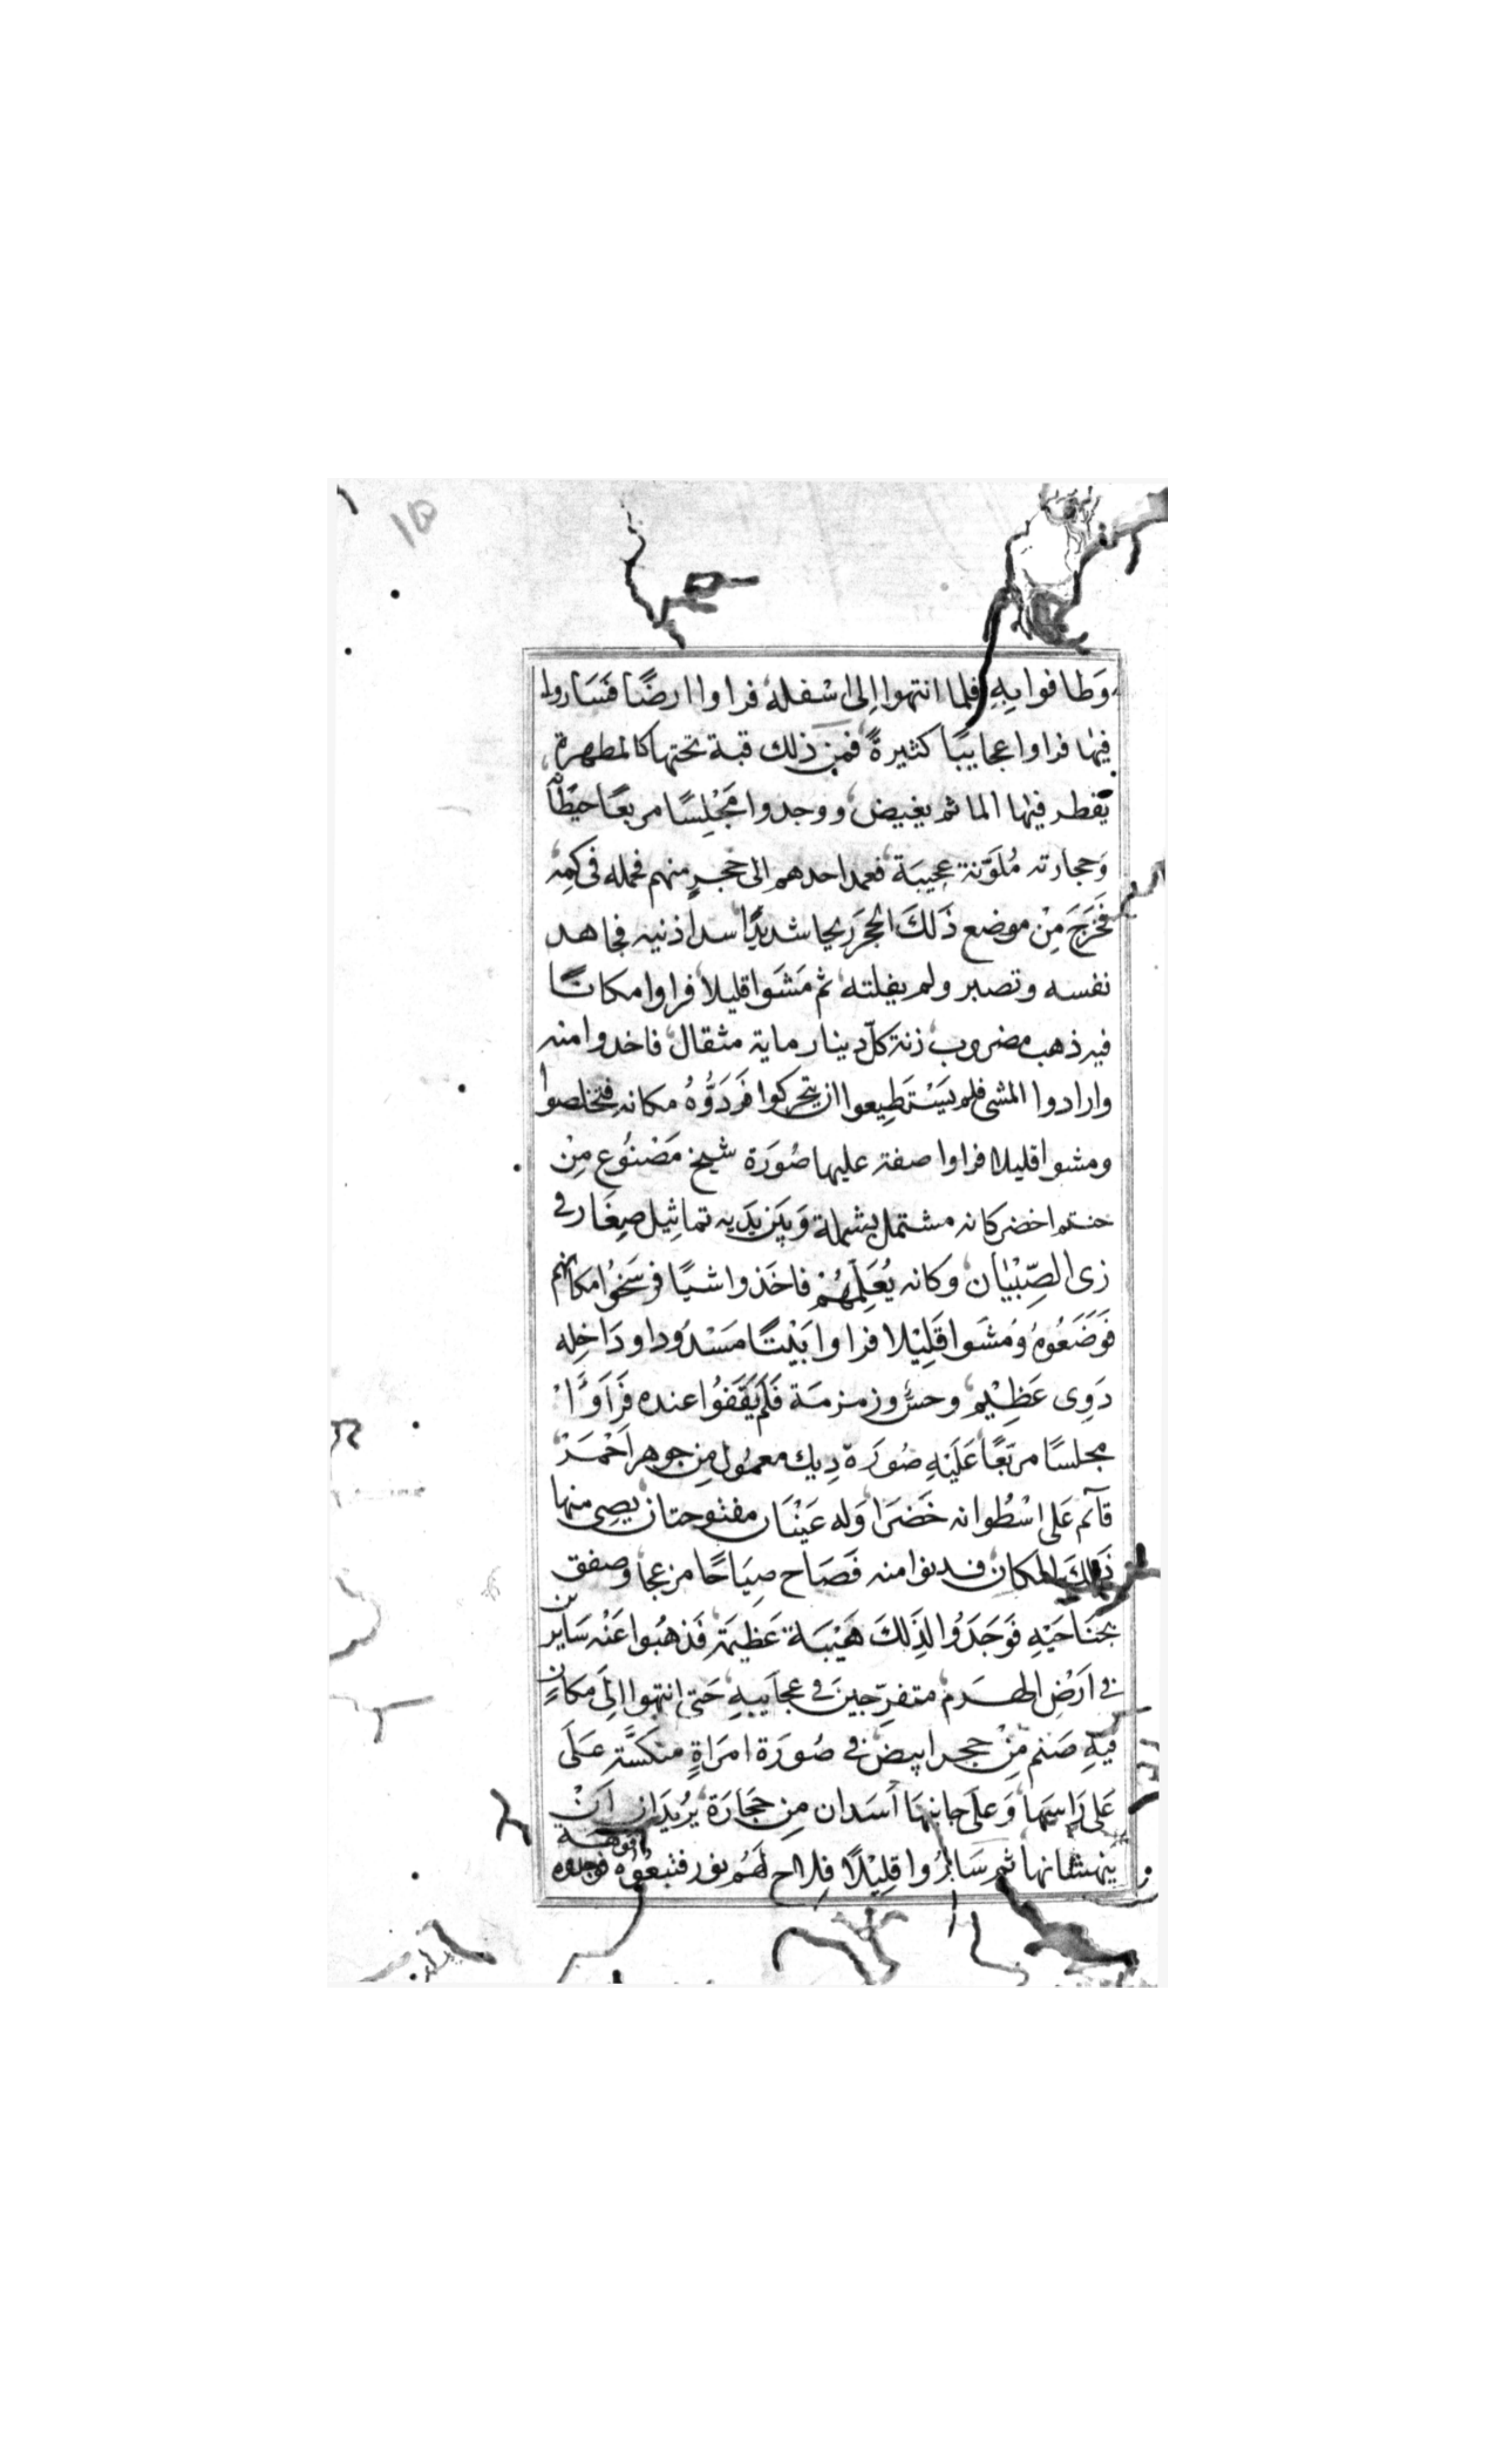 ١٥
وَطافوا بِهِ فلما انتهوا اِلى اسْفله فراوا ارضًا فَسَاروا
فيها فراوا عجايبًا كثيرةً فمن ذلك قبة تحتها كالمطهرة
يقطر فيها الما ثم يغيض ووجدوا مَجْلِسًا مربعًا حيطانه
وَحجارته مُلَوّنة عجيبَة فعمد احدهم الى حجرٍ منهم فحمله فى كمِه
فَخَرَجَ مِنْ موضع ذَلكَ الحجَر ريحا شديدًا سدا ذنيه فجاهد
نفسه وتصبر ولم يفلته ثم مَشَوا قليلا فراوا مكانًا
فيه ذهب مضروب زنة كلّ دينار ماية مثقال فاخدوا منه
وارادوا المشى فلم يَسْتَطِيعوا ان يتحركوا فَرَدَوُّهُ مكانه فتخلصوا
ومشوا قليلا فراوا صفة عليها صُورَة شيخ مَصْنُوع مِنْ
حنتم اخضر كانه مشتمل بشملة وَبَين يَدَيه تماثِيل صِغَار فى
زى الصِّبْيَان وكانه يُعَلِّمهُمْ فاخَذوا شيًا فرسَخوُا مكانهم
فَوَضَعُوهُ وَمُشَوا قَلِيْلا فراوا بَيْتًا مَسْدُودا ودَاخِله
دَوِى عَظِيْم وحسٌ وزمزمَة فَلَم يَقَفوُا عنده فَرَاَوًا
مجلسًا مربَعًا عَلَيْهِ صُورَة دِيك معمُول مِن جوهر اَحْمَرْ
قآئم عَلى اسْطُوانه خَضَرَا وَله عَيْنَان مفتوحتان يضِى منها
ذَلكَ المكان فدنوا منه فَصَاح صِيَاحًا مزعجا وصفق
بجَنَاحَيْهِ فوَجَدَوُا لذِلَكَ هَيْبَة عَظِيمَة فَذهبُوا عَنْه سَايرين
فى اَرْضِ الهَرَم متفرّجينَ فى عجايبهِ حَتى انتهوا الىَ مكانٍ
فيهِ صَنم مِنْ حجر ابيض فى صُورَة امرَاةٍ منكسَّةٍ عَلَى
عَلى رَاسِهَا وَعلىَ جانبهَا اَسَدان مِن حَجَارَة يُريدَان اَنْ
ينهشانها ثم سَاروُا قلِيْلًا فلاح لَهُم نور فتبعُوُه فوجدوه
فوهة